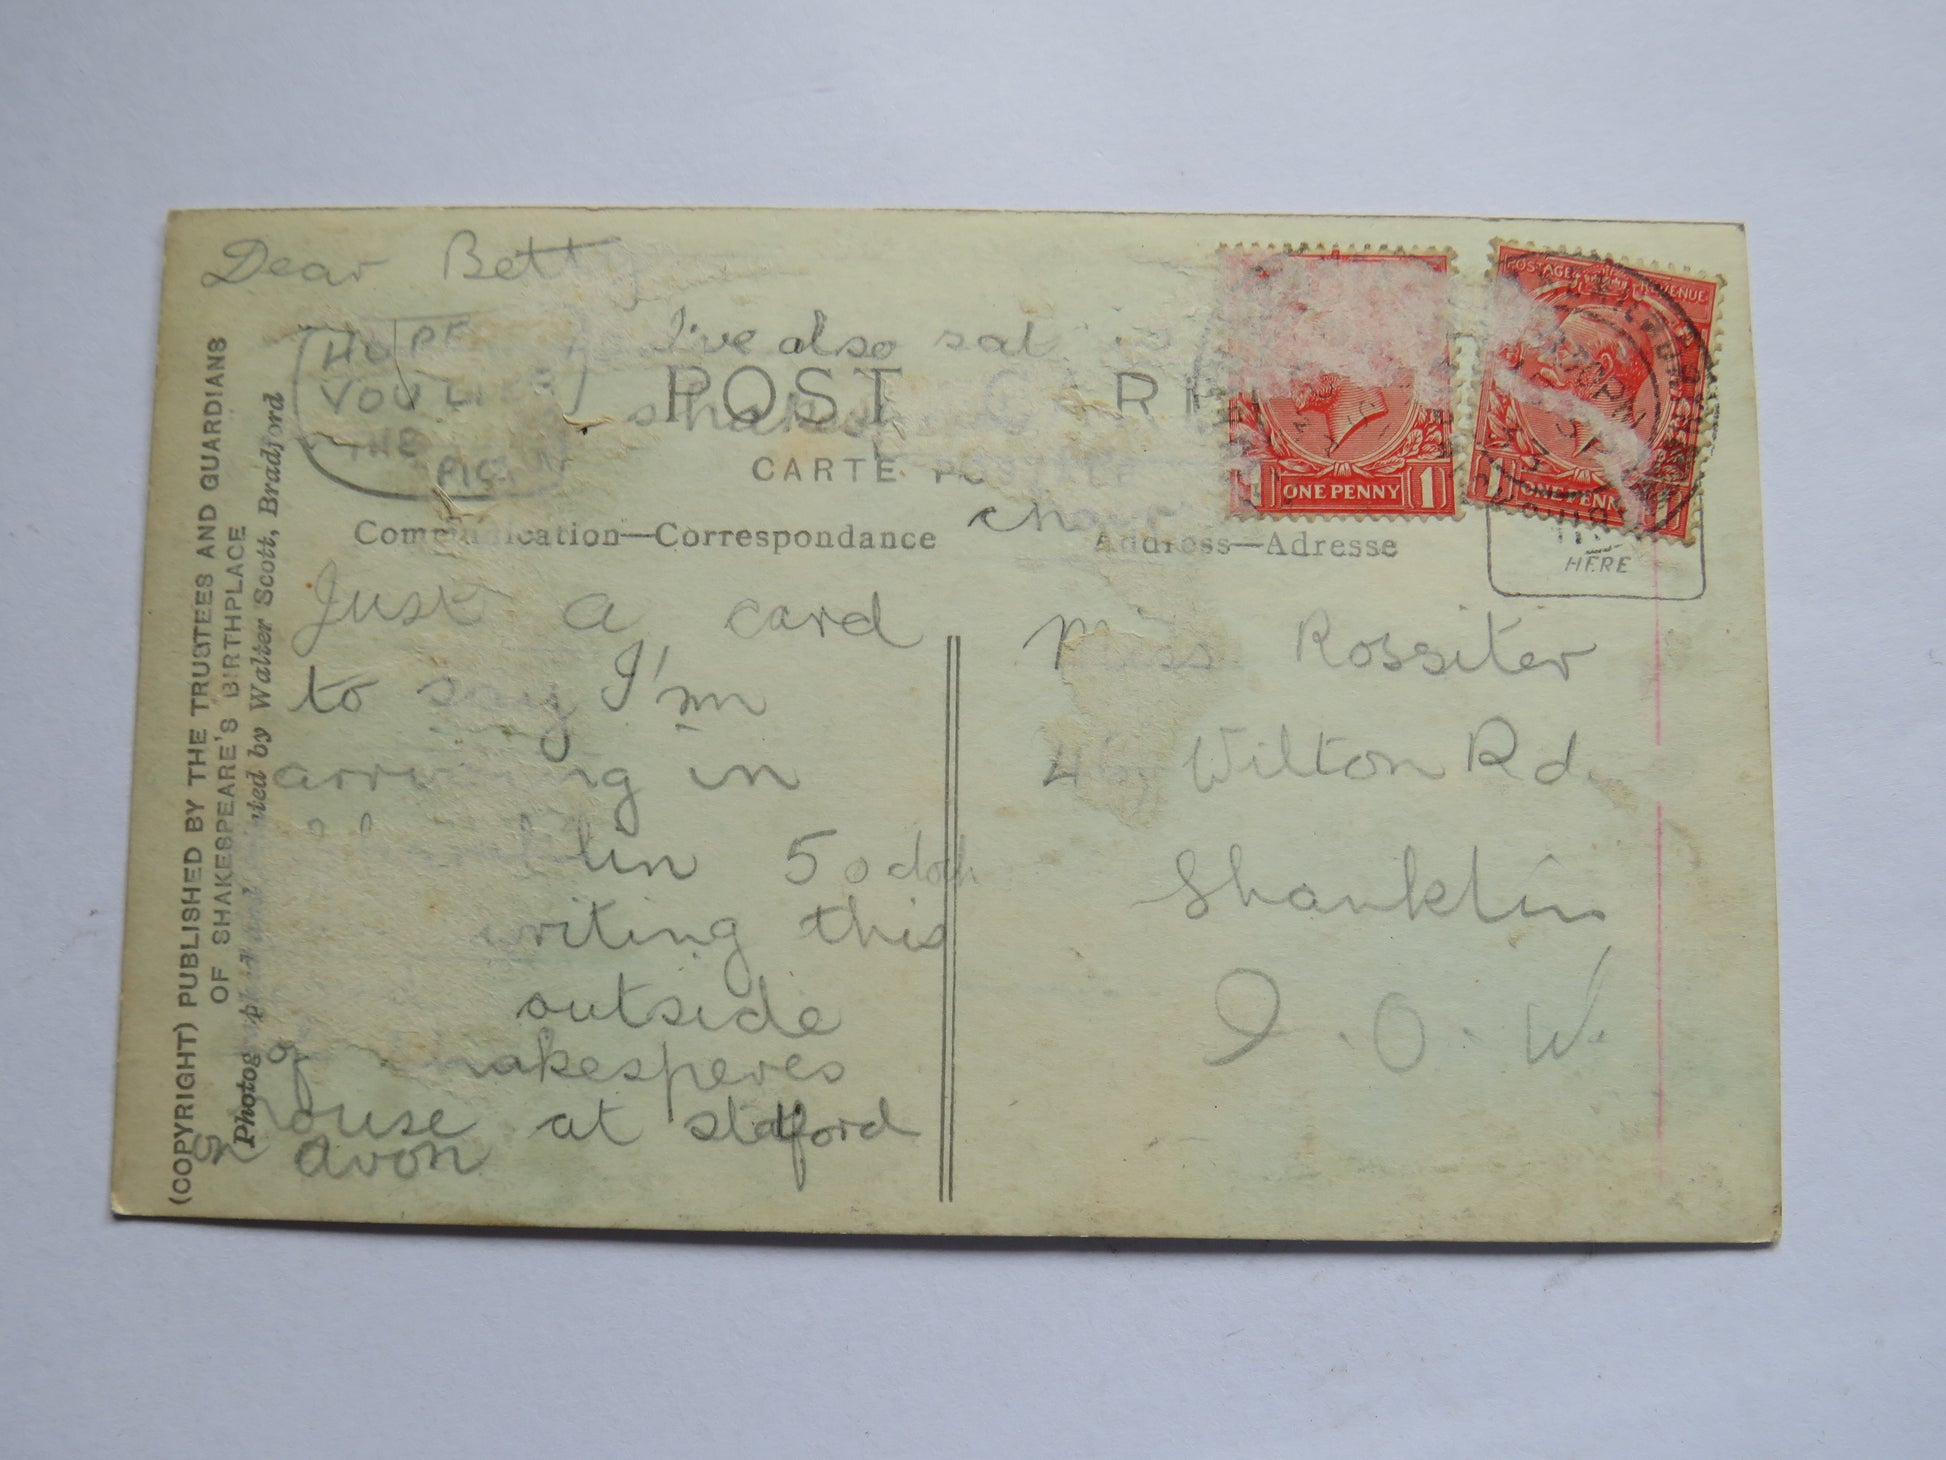 Dear Betty
HOPE
YOU LIKE
THE
PICT
I've also sat in
shakes
chair
POST CARD
CARTE POSTALE
Communication—Correspondance
Address—Adresse
Just a card
to say I'm
arriving in
Shanklin 5 oclock
writing this
outside
of shakesperes
house at statford
on avon
Miss Rossiter
Wilton Rd.
Shanklin
I.O.W.
POSTAGE REVENUE
ONE PENNY
1
1 ONE PENNY 1
HERE
(COPYRIGHT) PUBLISHED BY THE TRUSTEES AND GUARDIANS
OF SHAKESPEARE'S BIRTHPLACE
Photographed and Printed by Walter Scott, Bradford